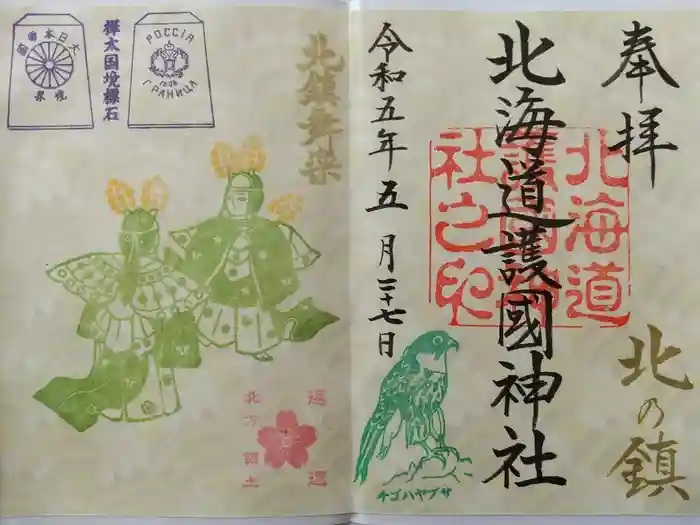 奉拝
北海道護國神社
北海道
護國神
社之印
令和五年五月二十七日
北の鎮
チゴハヤブサ
北鎮舞楽
РОССІЯ
1906
ГРАНИЦА
樺太国境標石
大日本帝國
境界
返還
北方領土